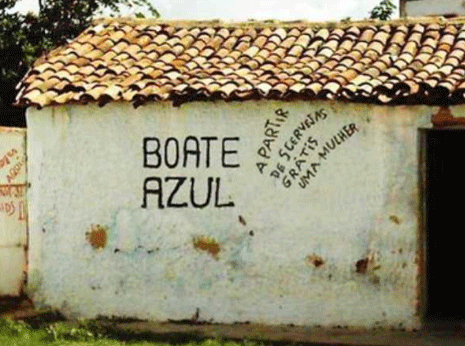 BOATE
AZUL
A PARTIR
DE 5 CERVEJAS
GRÁTIS
UMA MULHER